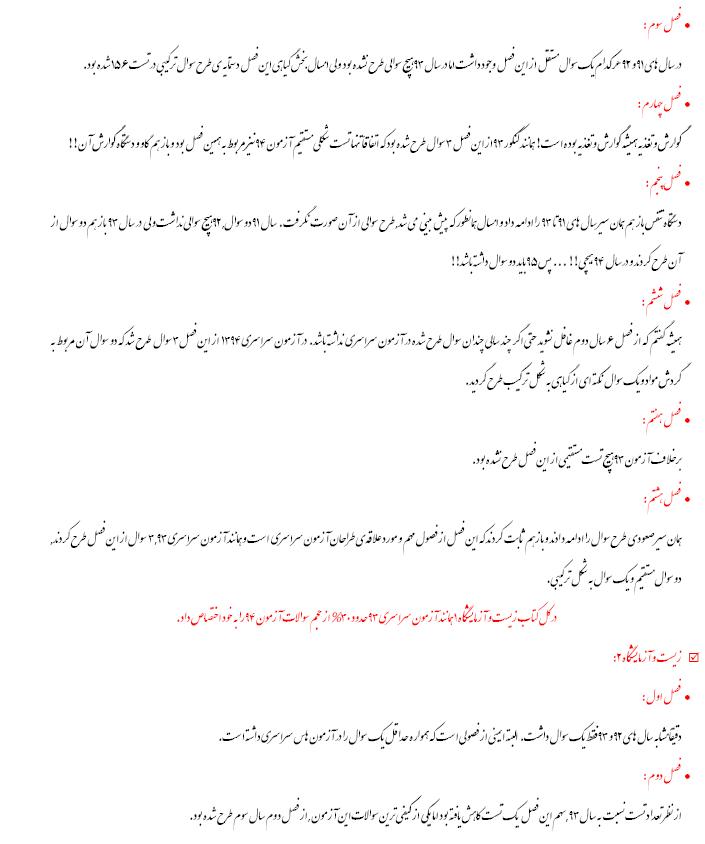 • فصل سوم :
در سال های ۹۱ و ۹۲ هرکدام یک سوال مستقل از این فصل وجود داشت اما در سال ۹۳ هیچ سوالی طرح نشده بود ولی امسال بخش گیاهی این فصل دستمایه ی طرح سوال ترکیبی در تست ۱۵۶ شده بود.
• فصل چهارم :
گوارش و تغذیه همیشه گوارش و تغذیه بوده است! همانند کنکور ۹۳ از این فصل ۳ سوال طرح شده بود که اتفاقا تنها تست شکلی مستقیم آزمون ۹۴ نیز مربوط به همین فصل بود و باز هم گاو و دستگاه گوارش آن!!
• فصل پنجم :
دستگاه تنفس باز هم همان سیر سال های ۹۱ تا ۹۳ را ادامه داد و امسال همانطور که پیش بینی می شد, طرح سوالی از آن صورت نگرفت. سال ۹۱ دو سوال, ۹۲ هیچ سوالی نداشت ولی در سال ۹۳ باز هم دو سوال از
آن طرح کردند و در سال ۹۴ هیچی!! ... پس ۹۵ باید دو سوال داشته باشد!!
• فصل ششم :
همیشه گفتم که از فصل ۶ سال دوم غافل نشوید حتی اگر چند سالی چندان سوال طرح شده در آزمون سراسری نداشته باشد. در آزمون سراسری ۱۳۹۴ از این فصل ۳ سوال طرح شد که دو سوال آن مربوط به
گردش مواد و یک سوال نکته ای از گیاهی به شکل ترکیب طرح گردید.
• فصل هفتم :
برخلاف آزمون ۹۳ هیچ تست مستقیمی از این فصل طرح نشده بود.
• فصل هشتم :
همان سیر صعودی طرح سوال را ادامه دادند و باز هم ثابت کردند که این فصل از فصول مهم و مورد علاقه ی طراحان آزمون سراسری است و همانند آزمون سراسری ۹۳, ۳ سوال از این فصل طرح کردند,
دو سوال مستقیم و یک سوال به شکل ترکیبی.
در کل کتاب زیست و آزمایشگاه ۱ همانند آزمون سراسری ۹۳ حدود ۳۰% از حجم سوالات آزمون ۹۴ را به خود اختصاص داد.
☑ زیست و آزمایشگاه ۲:
• فصل اول :
دقیقا مشابه سال های ۹۲ و ۹۳ فقط یک سوال داشت. البته ایمنی از فصولی است که همواره حداقل یک سوال را در آزمون های سراسری داشته است.
• فصل دوم :
از نظر تعداد تست نسبت به سال ۹۳, سهم این فصل یک تست کاهش یافته بود اما یکی از کیفی ترین سوالات این آزمون, از فصل دوم سال سوم طرح شده بود.